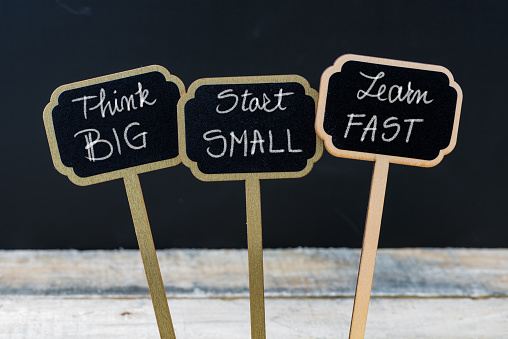 Think
BIG
Start
SMALL
Learn
FAST